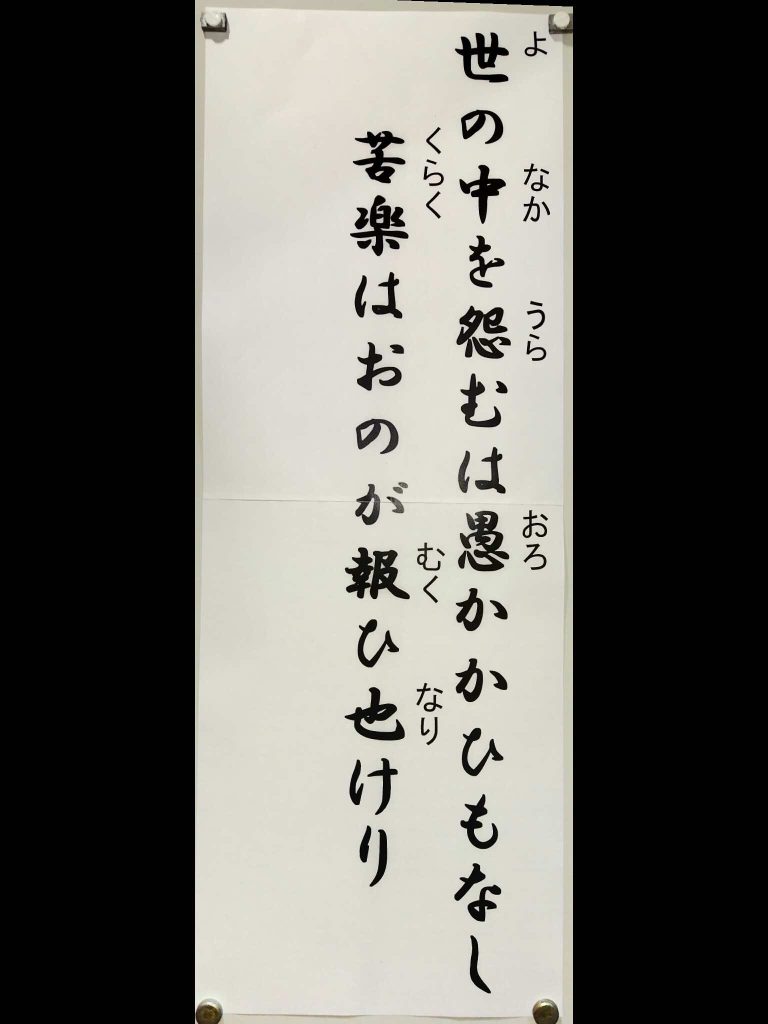 世の中を怨むは愚かかひもなし
よ なか うら おろ
苦楽はおのが報ひ也けり
くらく むく なり